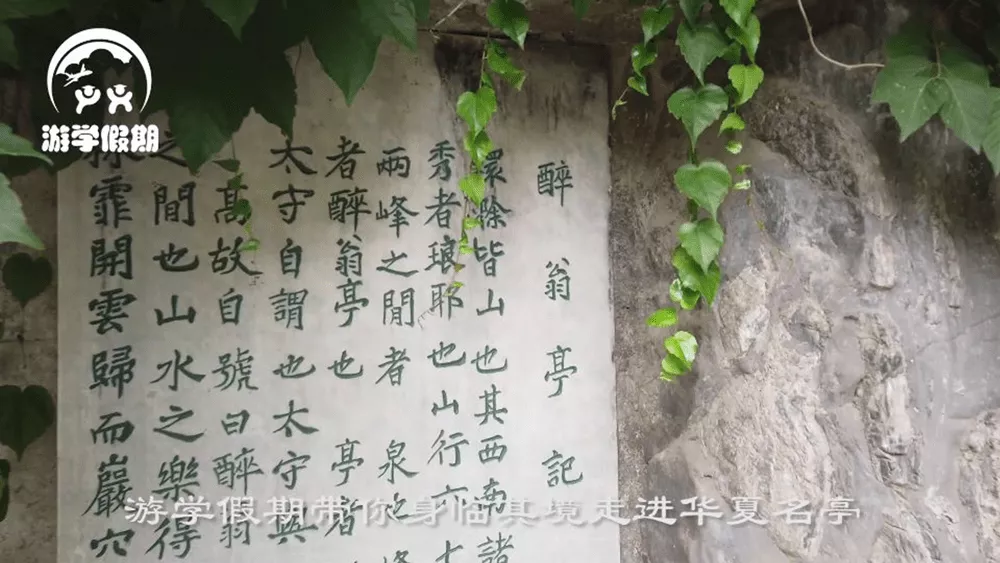 游学假期
醉翁亭記
環滁皆山也其西南諸
秀者琅耶也山行六七
兩峰之間者 泉
者醉翁亭也 亭者
太守自謂也太守與
高故自號曰醉翁
之間也山水之樂得
林霏開雲歸而巖穴
游学假期带你身临其境走进华夏名亭